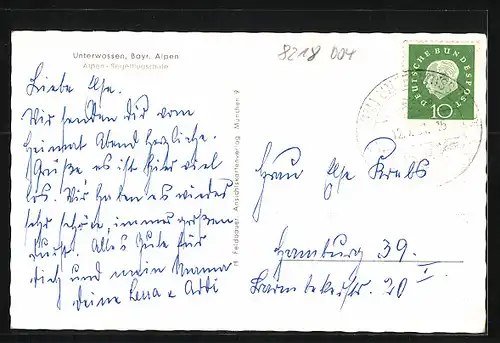 Unterwössen, Bayr. Alpen
Alpen-Segelflugschule
8218 D04
DEUTSCHE BUNDESPOST
10
Liebe Ilse.
Wir senden dir vom
Heimat Abend herzliche
Grüße es ist hier viel
los. Wir haben es wieder
sehr schön, immer großen
Durst. Alles Gute für
dich und mein Mama
deine Lena u Adi
H. Feldbauer, Ansichtskartenverlag, München 9
Frau Ilse Krebs
Hamburg 39.
Barmbekerstr. 20 I.